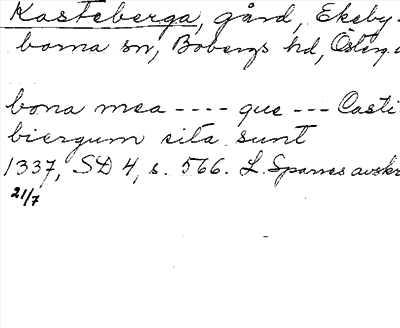 Kasteberga, gård, Ekeby-
borna sn, Bobergs hd, Östg.
bona mea ---- que --- Casti
biergum sita sunt
1337, SD 4, s. 566. L. Sparres avskr
21/7